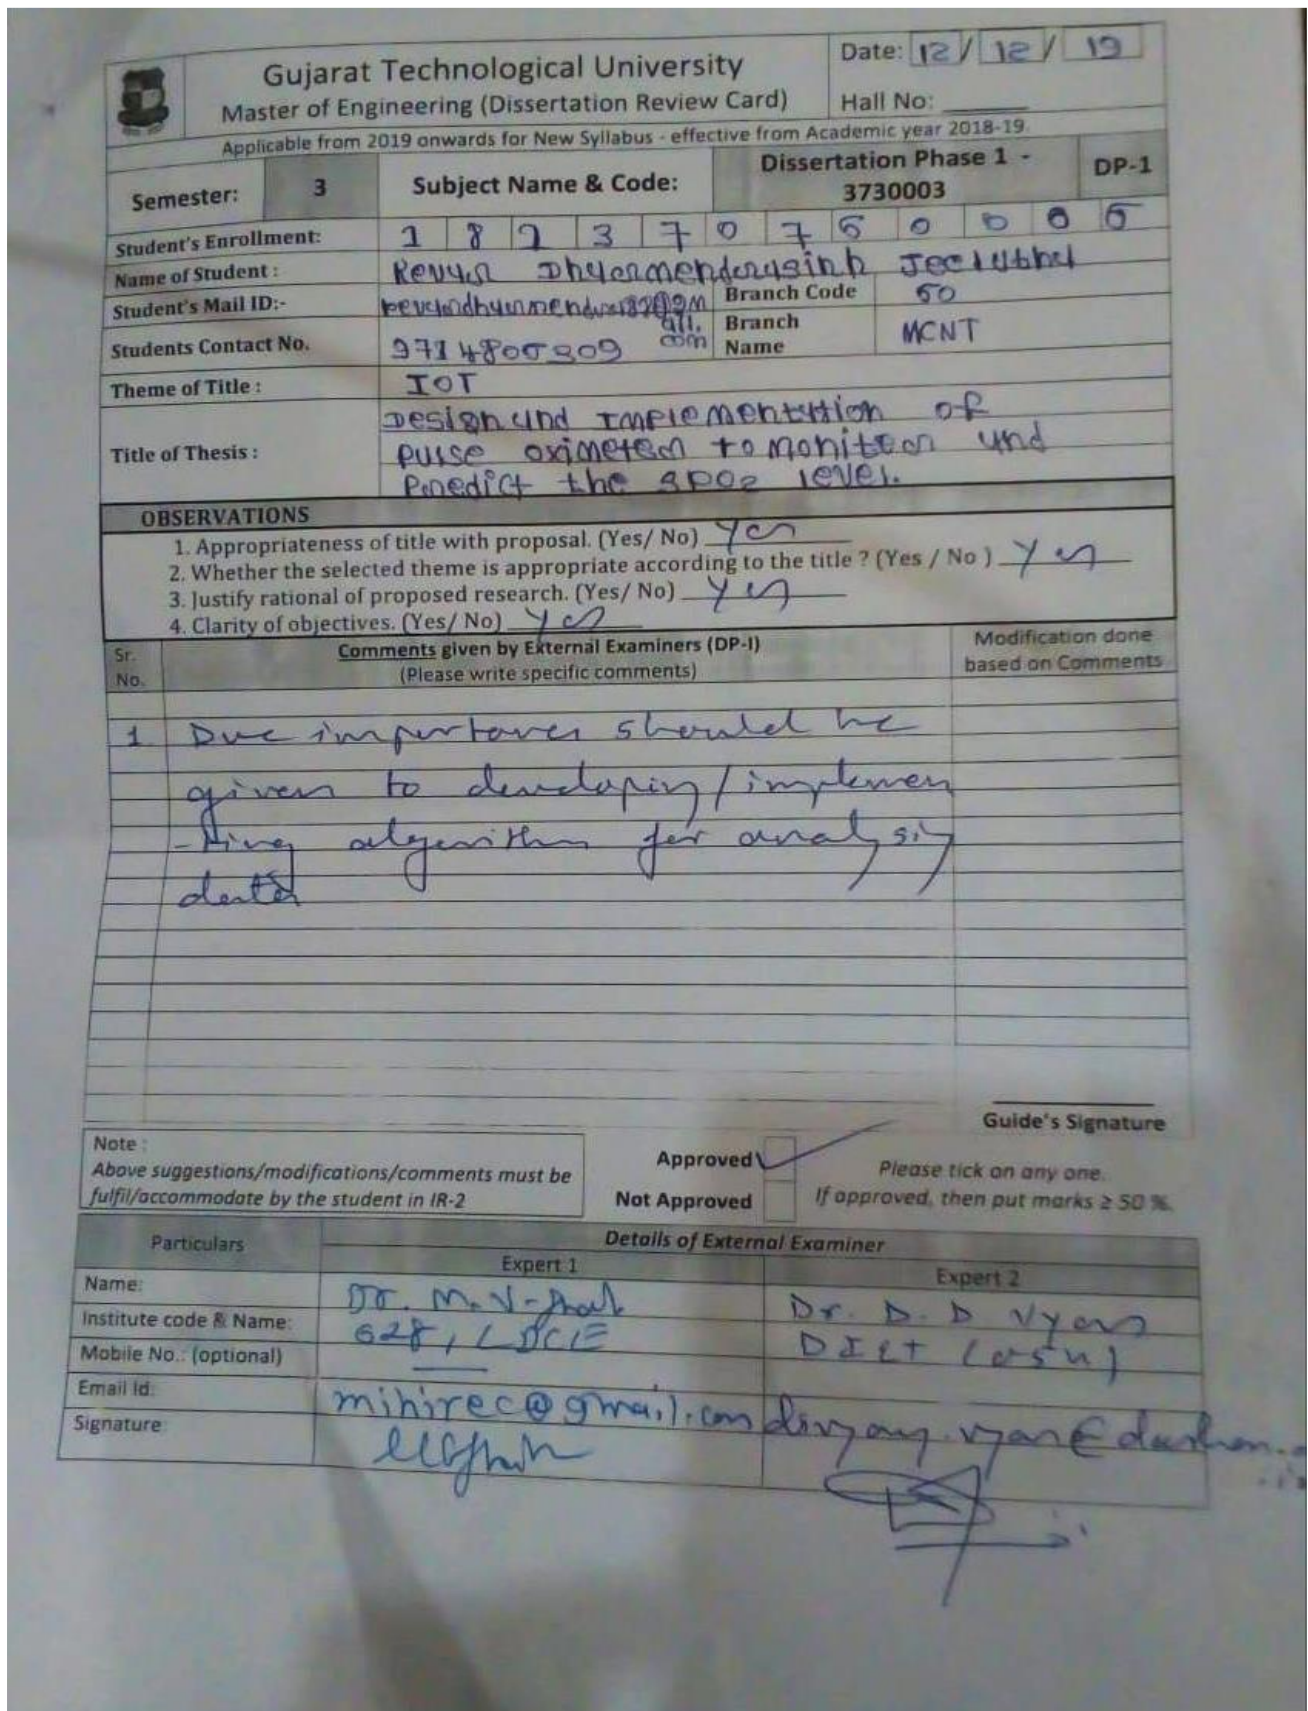 Gujarat Technological University
Master of Engineering (Dissertation Review Card)
Date: 12 / 12 / 19
Hall No:
Applicable from 2019 onwards for New Syllabus - effective from Academic year 2018-19.
Semester: 3 Subject Name & Code: Dissertation Phase 1 - 3730003 DP-1
Student's Enrollment:
Name of Student :
Student's Mail ID:- Branch Code 50
Students Contact No. Branch Name MCNT
Theme of Title : IOT
Title of Thesis :
Design and Implementation of
pulse oximeter to monitor and
Predict the SPO2 level.
OBSERVATIONS
1. Appropriateness of title with proposal. (Yes/ No) Yes
2. Whether the selected theme is appropriate according to the title ? (Yes / No ) Yes
3. Justify rational of proposed research. (Yes/ No) Yes
4. Clarity of objectives. (Yes/ No) Yes
Sr. No. Comments given by External Examiners (DP-I) Modification done
(Please write specific comments) based on Comments
1 Due importance should be
given to developing / implemen
-ting algorithm for analysing
data
Guide's Signature
Note :
Above suggestions/modifications/comments must be
fulfil/accommodate by the student in IR-2
Approved
Not Approved
Please tick on any one.
If approved, then put marks ≥ 50 %.
Particulars Details of External Examiner
Expert 1 Expert 2
Name: Dr. M. V. Dr. D. D Vyas
Institute code & Name: 028, LDCE DIET
Mobile No.: (optional)
Email Id: mihirec@gmail.com
Signature: